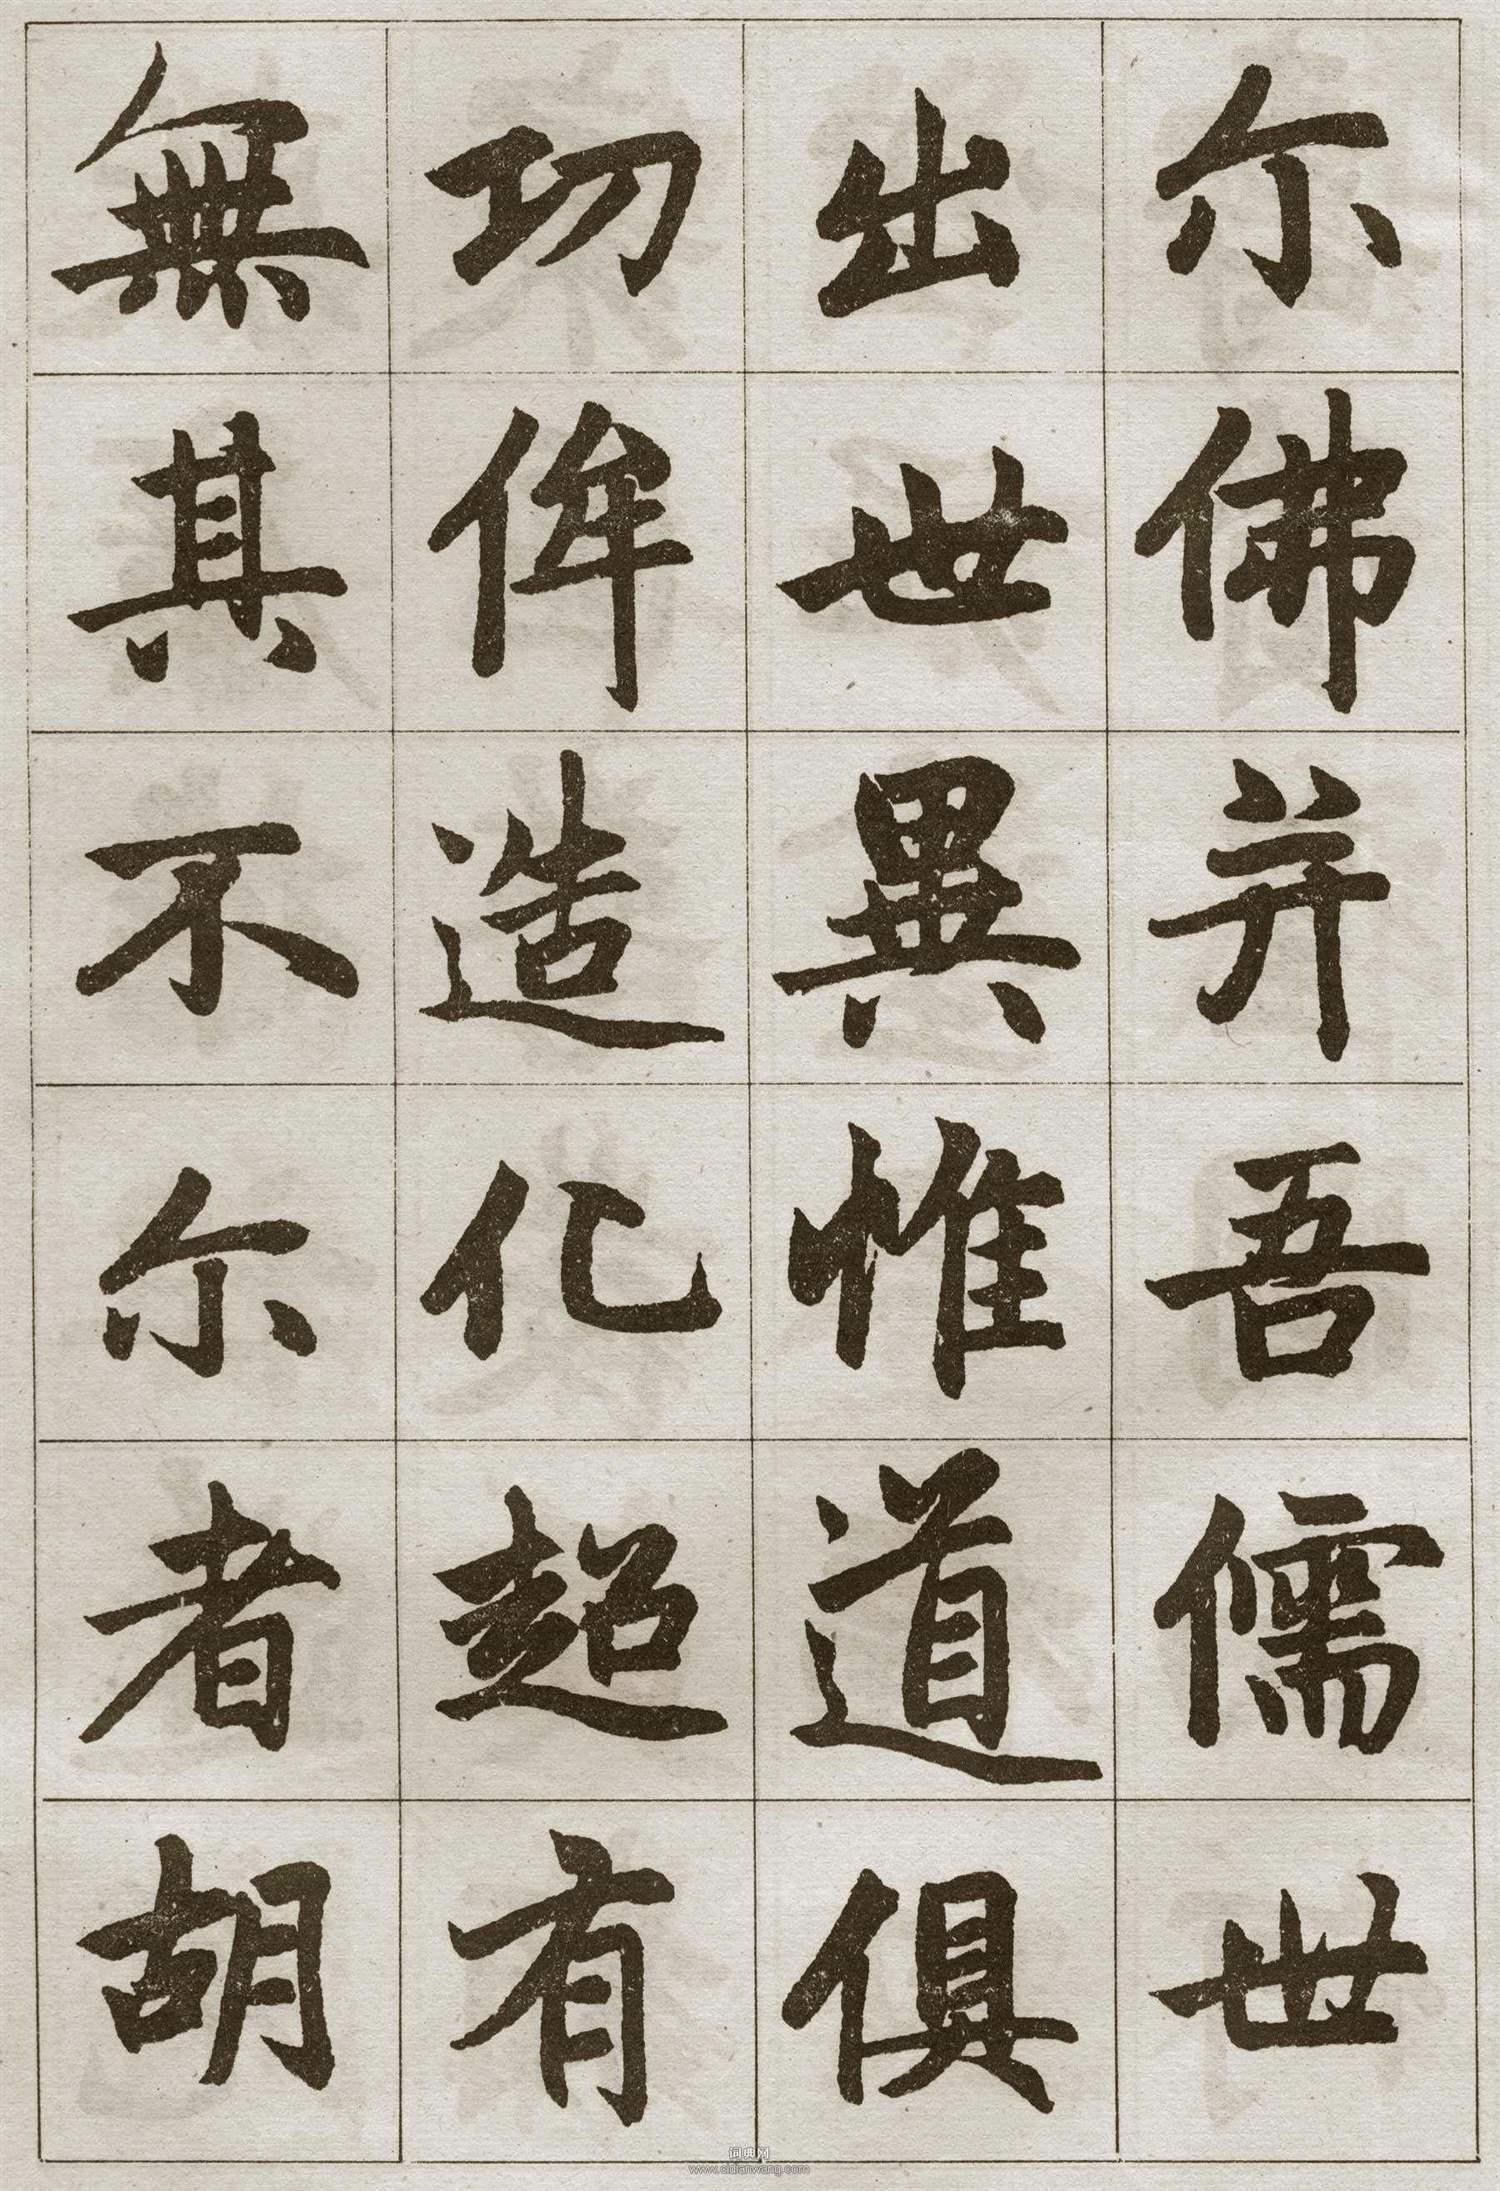 尒佛并吾儒世
出世異惟道俱
功侔造化超有
無其不尒者胡
词典网
www.cidianwang.com